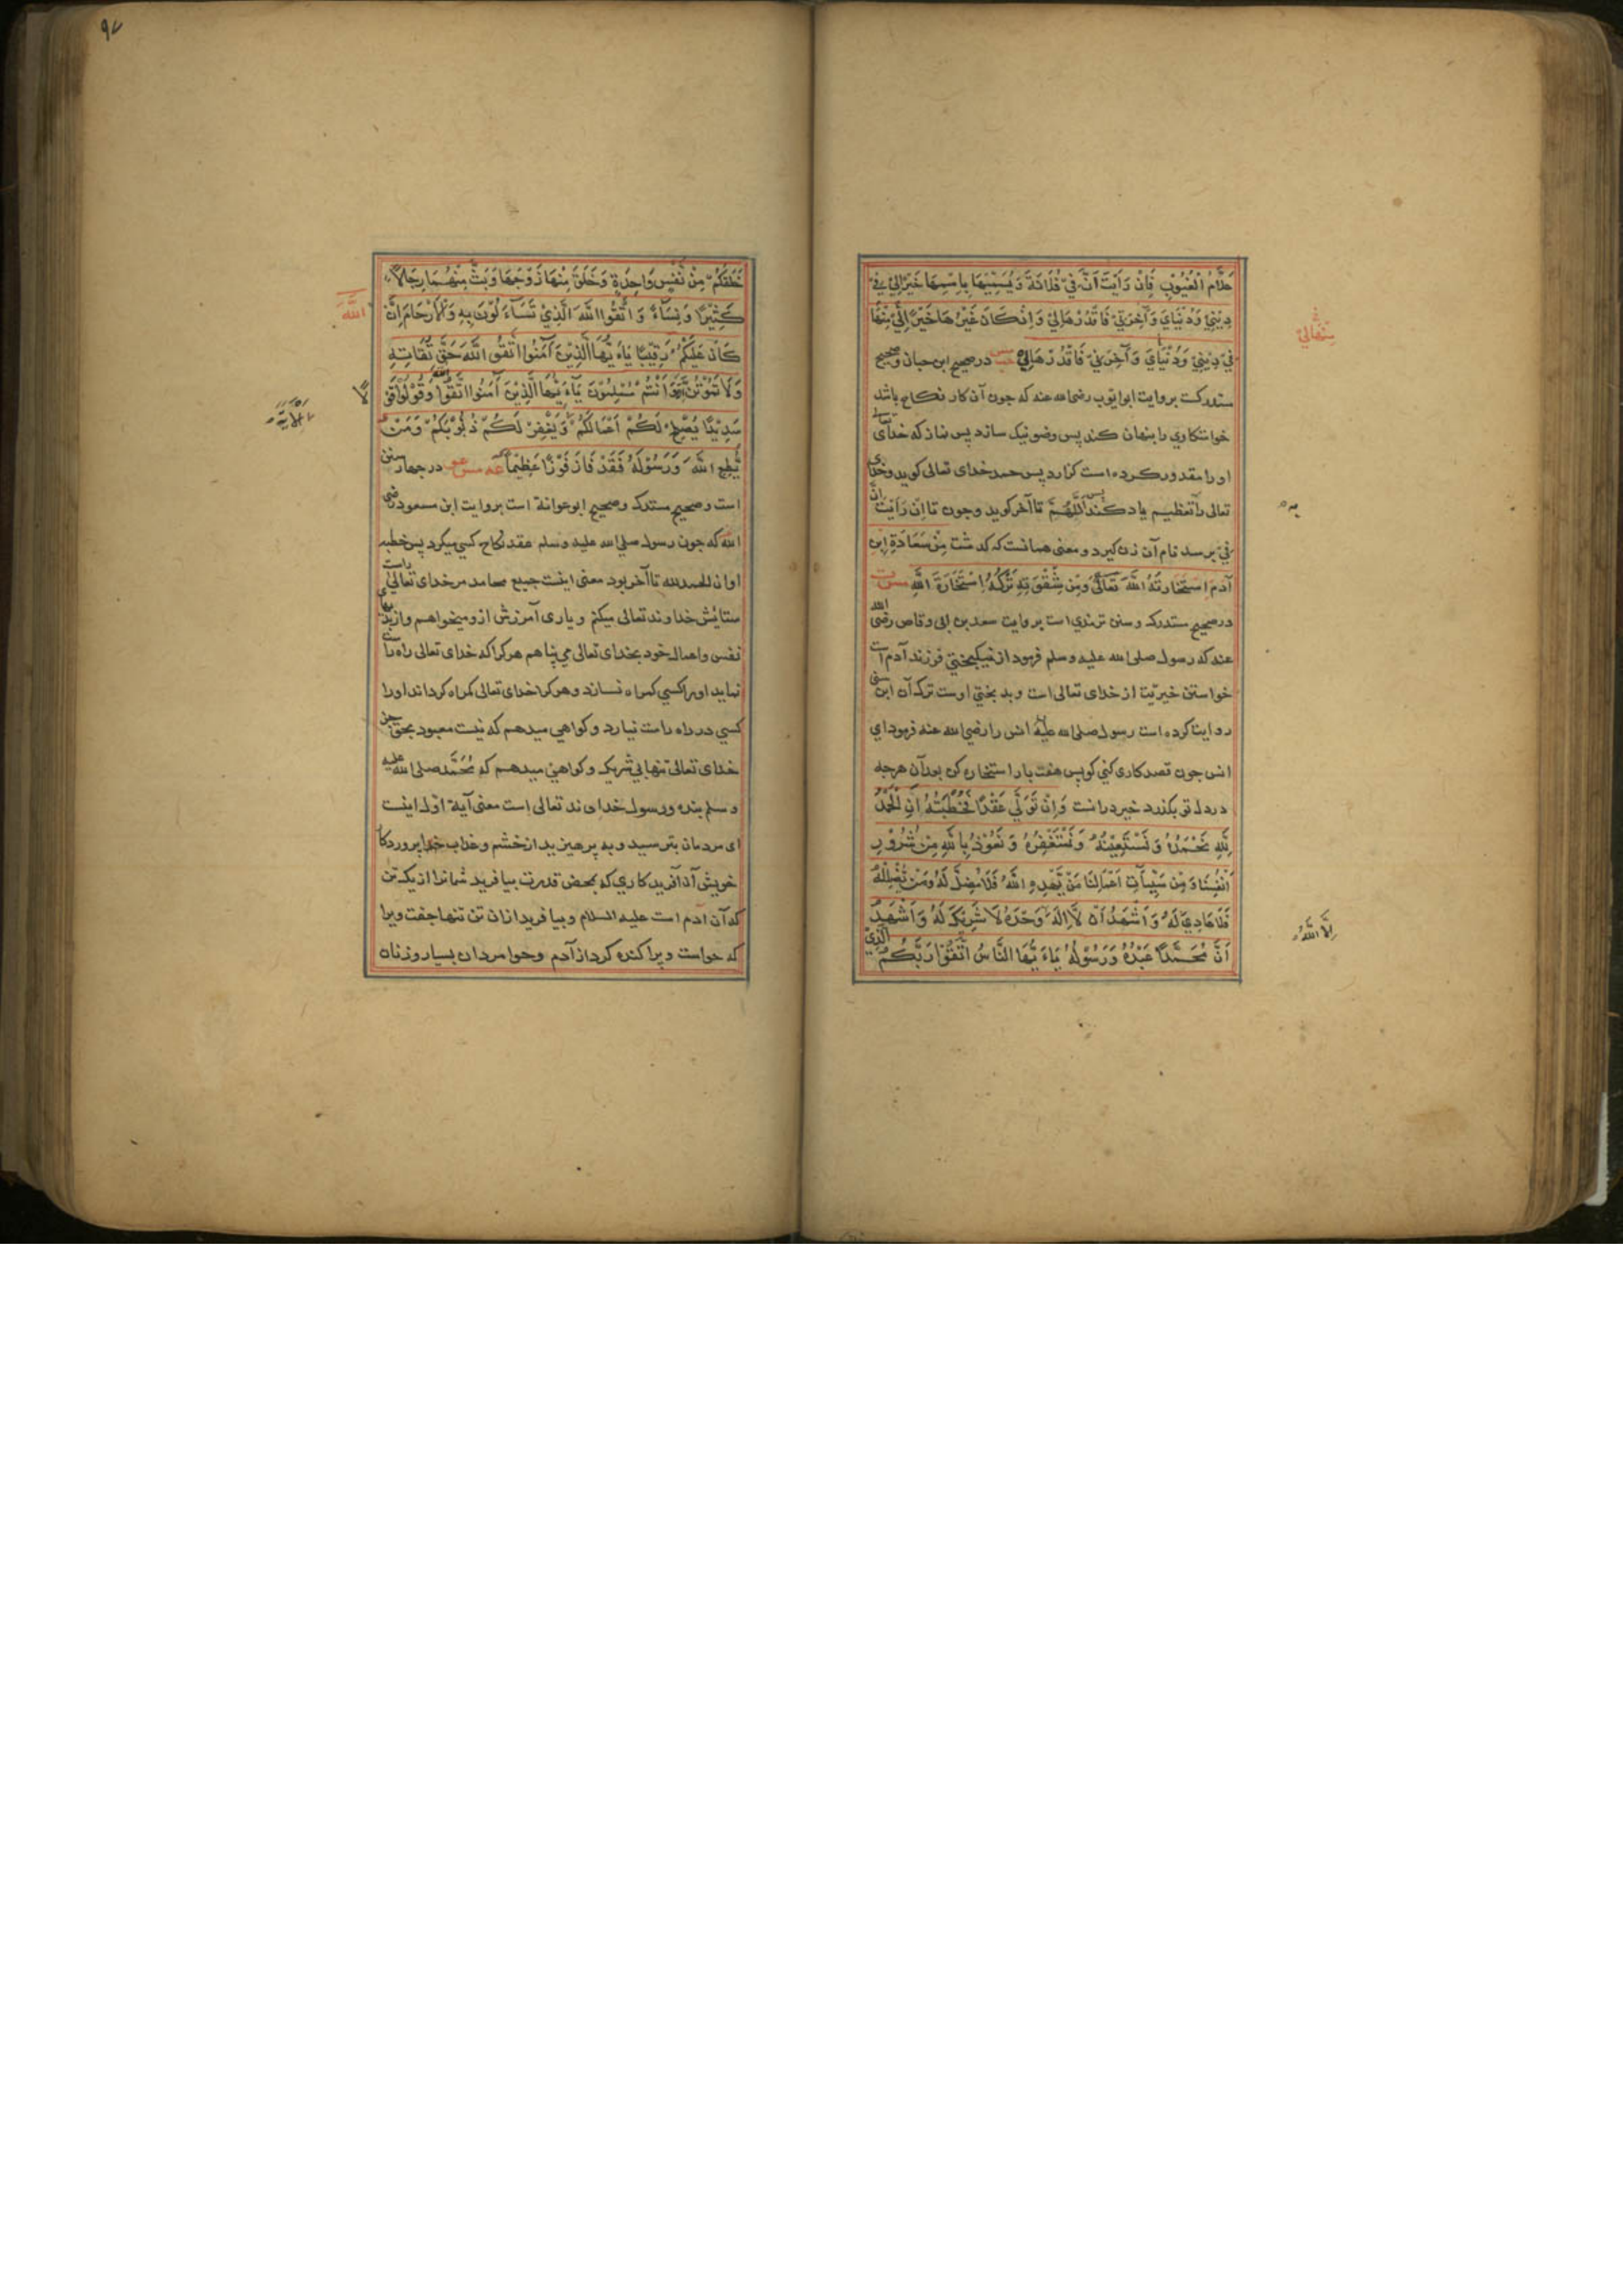 علام الغيوب فان رايت ان في فلانة ويسميها باسمها خيرا لي في
ديني ودنياي وآخرتي فاقدرها لي وان كان غيرها خيرا لي منها
في ديني ودنياي وآخرتي فاقدرها لي در صحيح ابن حبان وصحيح
مستدركست بروايت ابو ايوب رضى الله عنه كه چون آن كار نكاح باشد
خواستكاري را پنهان كند پس وضو نيك سازد پس نماز كه خداى تعالى
او را مقدور كرده است كزارد پس حمد خداى تعالى كويد وخداى
تعالى را بتعظيم ياد كند پس اللهم تا آخر كويد وچون تا ان رايت ان
في برسد نام آن زن كيرد ومعنى همانست كه كذشت من سعادة ابن
آدم استخارته الله تعالى ومن شقوته تركه استخارة الله مس ت
در صحيح مستدرك وسنن ترمذي است بروايت سعد بن ابى وقاص رضى الله
عنه كه رسول صلى الله عليه وسلم فرمود از نيكبختي فرزند آدم است
خواستن خيريت از خداى تعالى است وبدبختي اوست ترك آن ابن سنى
روايت كرده است رسول صلى الله عليه انس را رضي الله عنه فرمود اي
انس چون قصد كارى كني كو پس هفت بار استخاره كن بعد آن هرچه
در دل تو بكذرد خير در انست وان تولي عقدا فخطبته ان الحمد
لله نحمده ونستعينه ونستغفره ونعوذ بالله من شرور
انفسنا ومن سيئآت اعمالنا من يهده الله فلا مضل له ومن يضلله
فلا هادي له واشهد ان لا اله وحده لا شريك له واشهد
ان محمدا عبده ورسوله ياءيها الناس اتقوا ربكم الذي
به
الا الله
٩٧
خلقكم من نفس واحدة وخلق منها زوجها وبث منهما رجالا
كثيرا ونسآء واتقوا الله الذي تسآءلون به والارحام ان
كان عليكم رقيبا ياءيها الذين آمنوا اتقوا الله حق تقاته
ولا تموتن الا وانتم مسلمون ياءيها الذين آمنوا اتقوا الله وقولوا قولا
سديدا يصلح لكم اعمالكم ويغفر لكم ذنوبكم ومن
يطع الله ورسوله فقد فاز فوزا عظيما عه مس عو در چهار سنن
است وصحيح مستدرك وصحيح ابو عوانة است بروايت ابن مسعود رضى
الله كه چون رسول صلى الله عليه وسلم عقد نكاح كسي ميكرد پس خطبه
او ان الحمد لله تا آخر بود معنى اينست جميع محامد مر خداى تعالى راست
ستايش خداوند تعالى ميكنم ويارى آمرزش ازو ميخواهم واز بديهاى
نفس واعمال خود بخداى تعالى مي پناهم هر كرا كه خداى تعالى راه راست
نمايد او را كسي كمراه نسازد وهر كرا خداى تعالى كمراه كرداند او را
كسي در راه راست نيارد وكواهي ميدهم كه نيست معبود بحق جز
خداى تعالى تنها بي شريك وكواهي ميدهم كه محمد صلى الله عليه
وسلم بنده ورسول خداى ند تعالى است معنى آية اول اينست
اى مردمان بترسيد وبه پرهيزيد از خشم وعذاب خدا پروردكار
خويش آن آفريدكاري كه بمحض قدرت بيافريد شمانرا از يك تن
كه آن آدم است عليه السلام وبيافريد ازان تن تنها جفت ويرا
كه حواست وپراكنده كرد از آدم وحوا مردان بسيار وزنان
الله
الآية